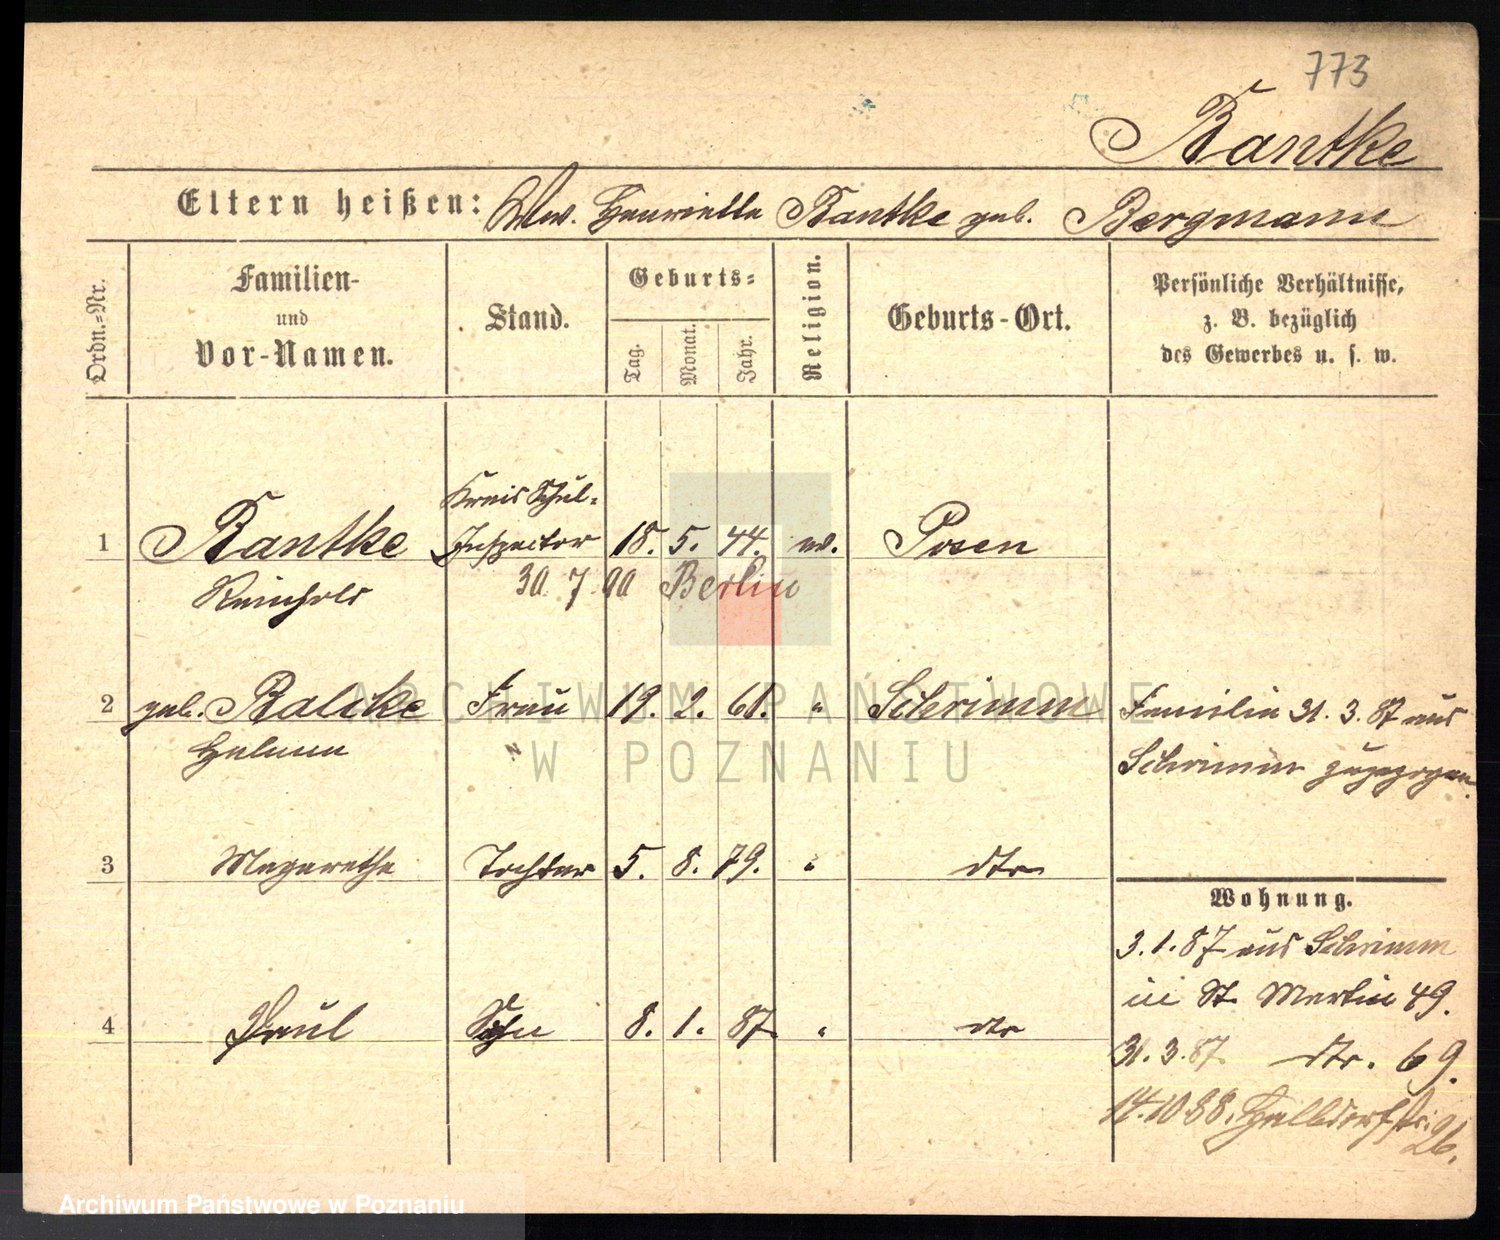 773
Bantke
Eltern heißen: Ww. Henriette Bantke geb. Bergmann
Ordn.-Nr.
Familien-
und
Vor-Namen.
Stand.
Geburts-
Tag.
Monat.
Jahr.
Religion.
Geburts-Ort.
Persönliche Verhältnisse,
z. B. bezüglich
des Gewerbes u. s. w.
Kreis Schul-
1 Bantke Inspector 18. 5. 44. ev. Posen
Reinhold 30. 7. 90 Berlin
2 geb. Balcke Frau 19. 2. 61. " Schrimm Familie 31. 3. 87 aus
Helene Schrimm zugezogen.
3 Magarethe Tochter 5. 8. 79. " dto
Wohnung.
3. 1. 87 aus Schrimm
in St. Martin 49.
4 Paul Sohn 8. 1. 87. " dto
31. 3. 87. dto. 69.
14. 10 88. Halbdorfstr. 26.
ARCHIWUM PAŃSTWOWE
W POZNANIU
Archiwum Państwowe w Poznaniu